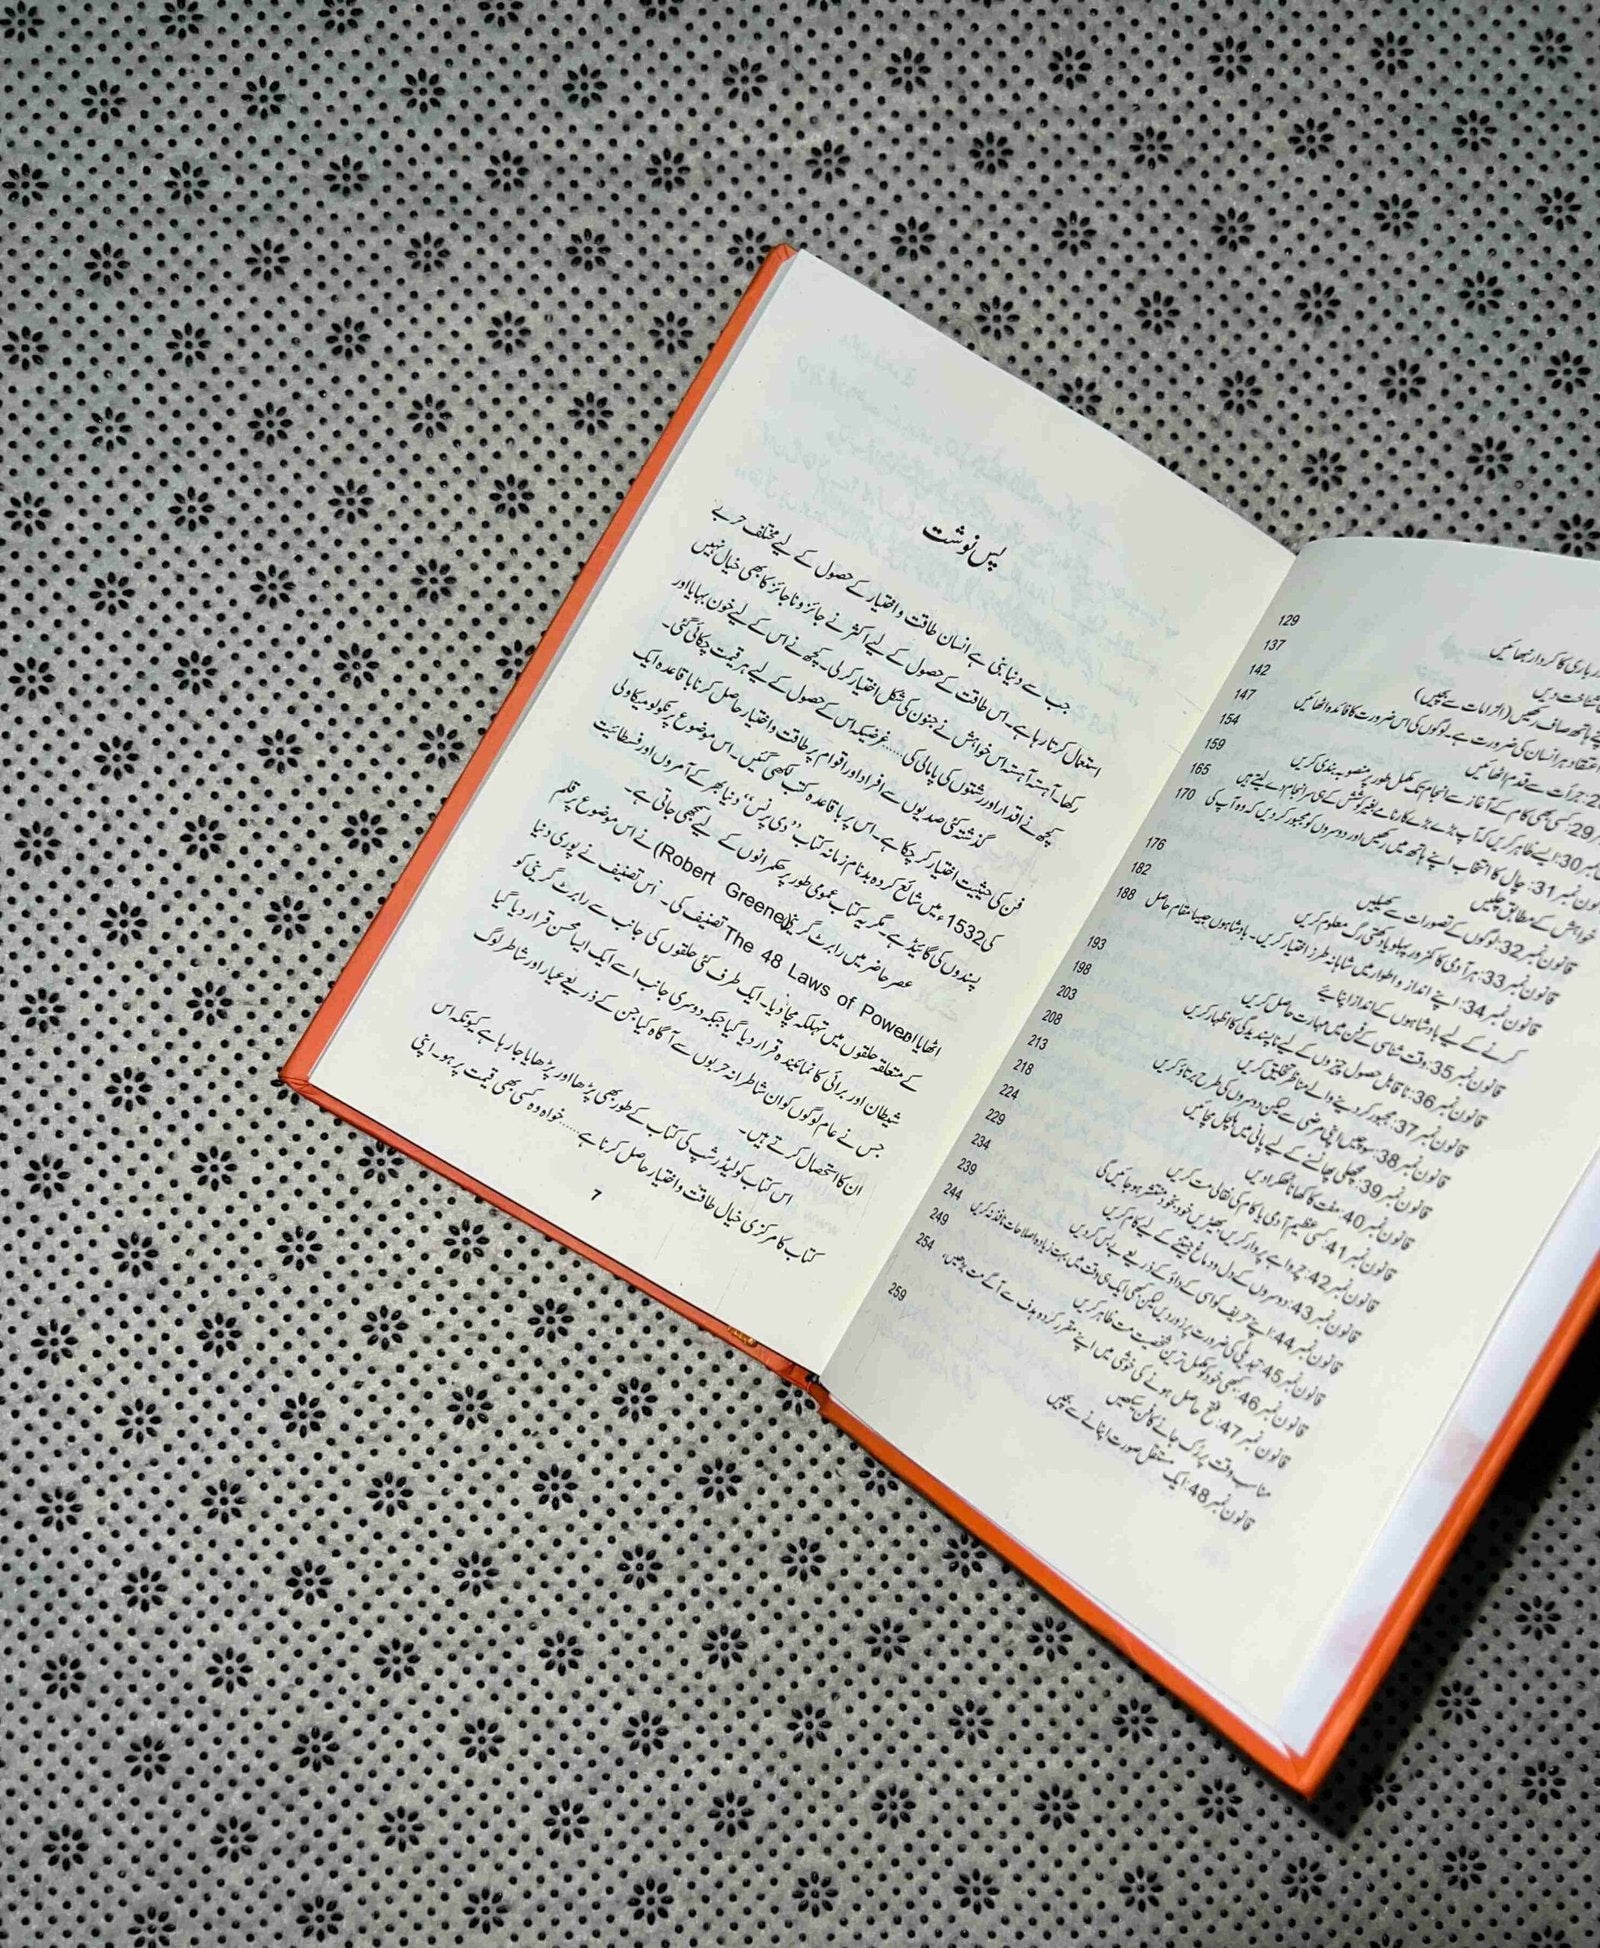 کردار نبھائیں 129
شناخت دیں 137
ہاتھ صاف رکھیں (الزامات سے بچیں) 142
اعتقاد ہر انسان کی ضرورت ہے۔ لوگوں کی اس ضرورت کا فائدہ اٹھائیں 147
جرأت سے قدم اٹھائیں 154
29: کسی بھی کام کے آغاز سے انجام تک مکمل طور پر منصوبہ بندی کریں 159
نمبر 30: ایسے ظاہر کریں کہ آپ بڑے بڑے کارنامے بغیر کوشش کے ہی سرانجام دے لیتے ہیں 165
نمبر 31: چال کا انتخاب اپنے ہاتھ میں رکھیں اور دوسروں کو مجبور کر دیں کہ وہ آپ کی 170
خواہش کے مطابق چلیں
قانون نمبر 32: لوگوں کے تصورات سے کھیلیں 176
قانون نمبر 33: ہر آدمی کا کمزور پہلو یا دکھتی رگ معلوم کریں 182
قانون نمبر 34: اپنے انداز و اطوار میں شاہانہ طرز اختیار کریں۔ بادشاہوں جیسا مقام حاصل 188
کرنے کے لیے بادشاہوں کے انداز اپنائیے
قانون نمبر 35: وقت شناسی کے فن میں مہارت حاصل کریں 193
قانون نمبر 36: ناقابل حصول چیزوں کے لیے ناپسندیدگی کا اظہار کریں 198
قانون نمبر 37: مجبور کر دینے والے مناظر تخلیق کریں 203
قانون نمبر 38: سوچیں اپنی مرضی سے لیکن دوسروں کی طرح برتاؤ کریں 208
قانون نمبر 39: مچھلی پھانسنے کے لیے پانی میں ہلچل مچائیں 213
قانون نمبر 40: مفت کا کھانا ٹھکرا دیں 218
قانون نمبر 41: کسی عظیم آدمی یا کام کی نقالی مت کریں 224
قانون نمبر 42: چرواہے پر وار کریں بھیڑیں خود بخود منتشر ہو جائیں گی 229
قانون نمبر 43: دوسروں کے دل و دماغ جیتنے کے لیے کام کریں 234
قانون نمبر 44: اپنے حریف کو اسی کے داؤ کے ذریعے بے بس کر دیں 239
قانون نمبر 45: تبدیلی کی ضرورت پر زور دیں لیکن کبھی ایک ہی وقت میں بہت زیادہ اصلاحات نافذ نہ کریں 244
قانون نمبر 46: کبھی خود کو مکمل ترین شخصیت مت ظاہر کریں 249
قانون نمبر 47: فتح حاصل ہونے کی خوشی میں اپنے مقرر کردہ ہدف سے آگے مت بڑھیں، 254
مناسب وقت پر رک جانے کا فن سیکھیں
قانون نمبر 48: ایک مستقل صورت اپنانے سے بچیں 259
پس نوشت
جب سے دنیا بنی ہے انسان طاقت و اختیار کے حصول کے لیے مختلف حربے
استعمال کرتا رہا ہے۔ اس طاقت کے حصول کے لیے اکثر نے جائز و ناجائز کا بھی خیال نہیں
رکھا۔ آہستہ آہستہ اس خواہش نے جنون کی شکل اختیار کر لی۔ کچھ نے اس کے لیے خون بہایا اور
کچھ نے اقدار اور رشتوں کی پامالی کی..... غرضیکہ اس کے حصول کے لیے ہر قیمت چکائی گئی۔
گذشتہ کئی صدیوں سے افراد اور اقوام پر طاقت و اختیار حاصل کرنا باقاعدہ ایک
فن کی حیثیت اختیار کر چکا ہے۔ اس پر باقاعدہ کتب لکھی گئیں۔ اس موضوع پر نکولو میکاولی
کی 1532ء میں شائع کردہ بدنام زمانہ کتاب ”دی پرنس“ دنیا بھر کے آمروں اور فسطائیت
پسندوں کی گائیڈ ہے۔ مگر یہ کتاب عمومی طور پر حکمرانوں کے لیے سمجھی جاتی ہے۔
عصر حاضر میں رابرٹ گرینی (Robert Greene) نے اس موضوع پر قلم
اٹھایا اور The 48 Laws of Power تصنیف کی۔ اس تصنیف نے پوری دنیا
کے متعلقہ حلقوں میں تہلکہ مچا دیا۔ ایک طرف کئی حلقوں کی جانب سے رابرٹ گرینی کو
شیطان اور برائی کا نمائندہ قرار دیا گیا جبکہ دوسری جانب اسے ایک ایسا محسن قرار دیا گیا
جس نے عام لوگوں کو ان شاطرانہ حربوں سے آگاہ کیا جن کے ذریعے عیار اور شاطر لوگ
ان کا استحصال کرتے ہیں۔
اس کتاب کو لیڈرشپ کی کتاب کے طور بھی پڑھا اور پڑھایا جا رہا ہے کیونکہ اس
کتاب کا مرکزی خیال طاقت و اختیار حاصل کرنا ہے..... خواہ وہ کسی بھی قیمت پر ہو۔ اپنی
7